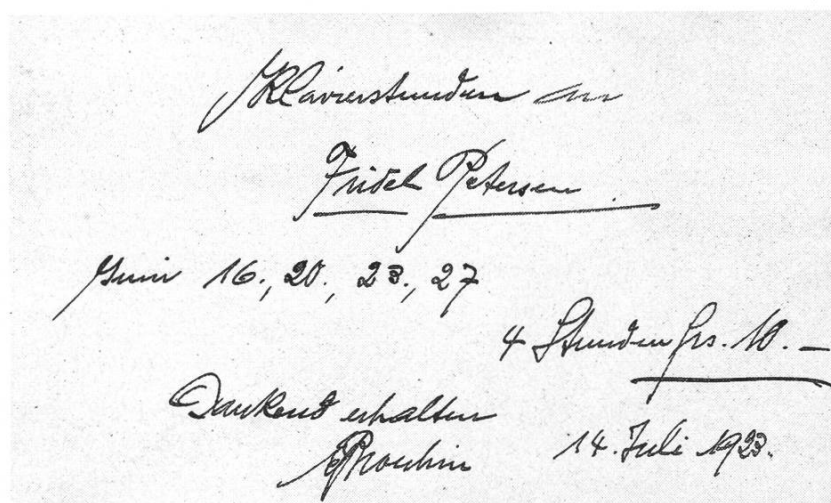 Klavierstunden an
Fridel Petersen
Juni 16., 20., 23., 27
4 Stunden Frs. 10.—
Dankend erhalten
14. Juli 1923.